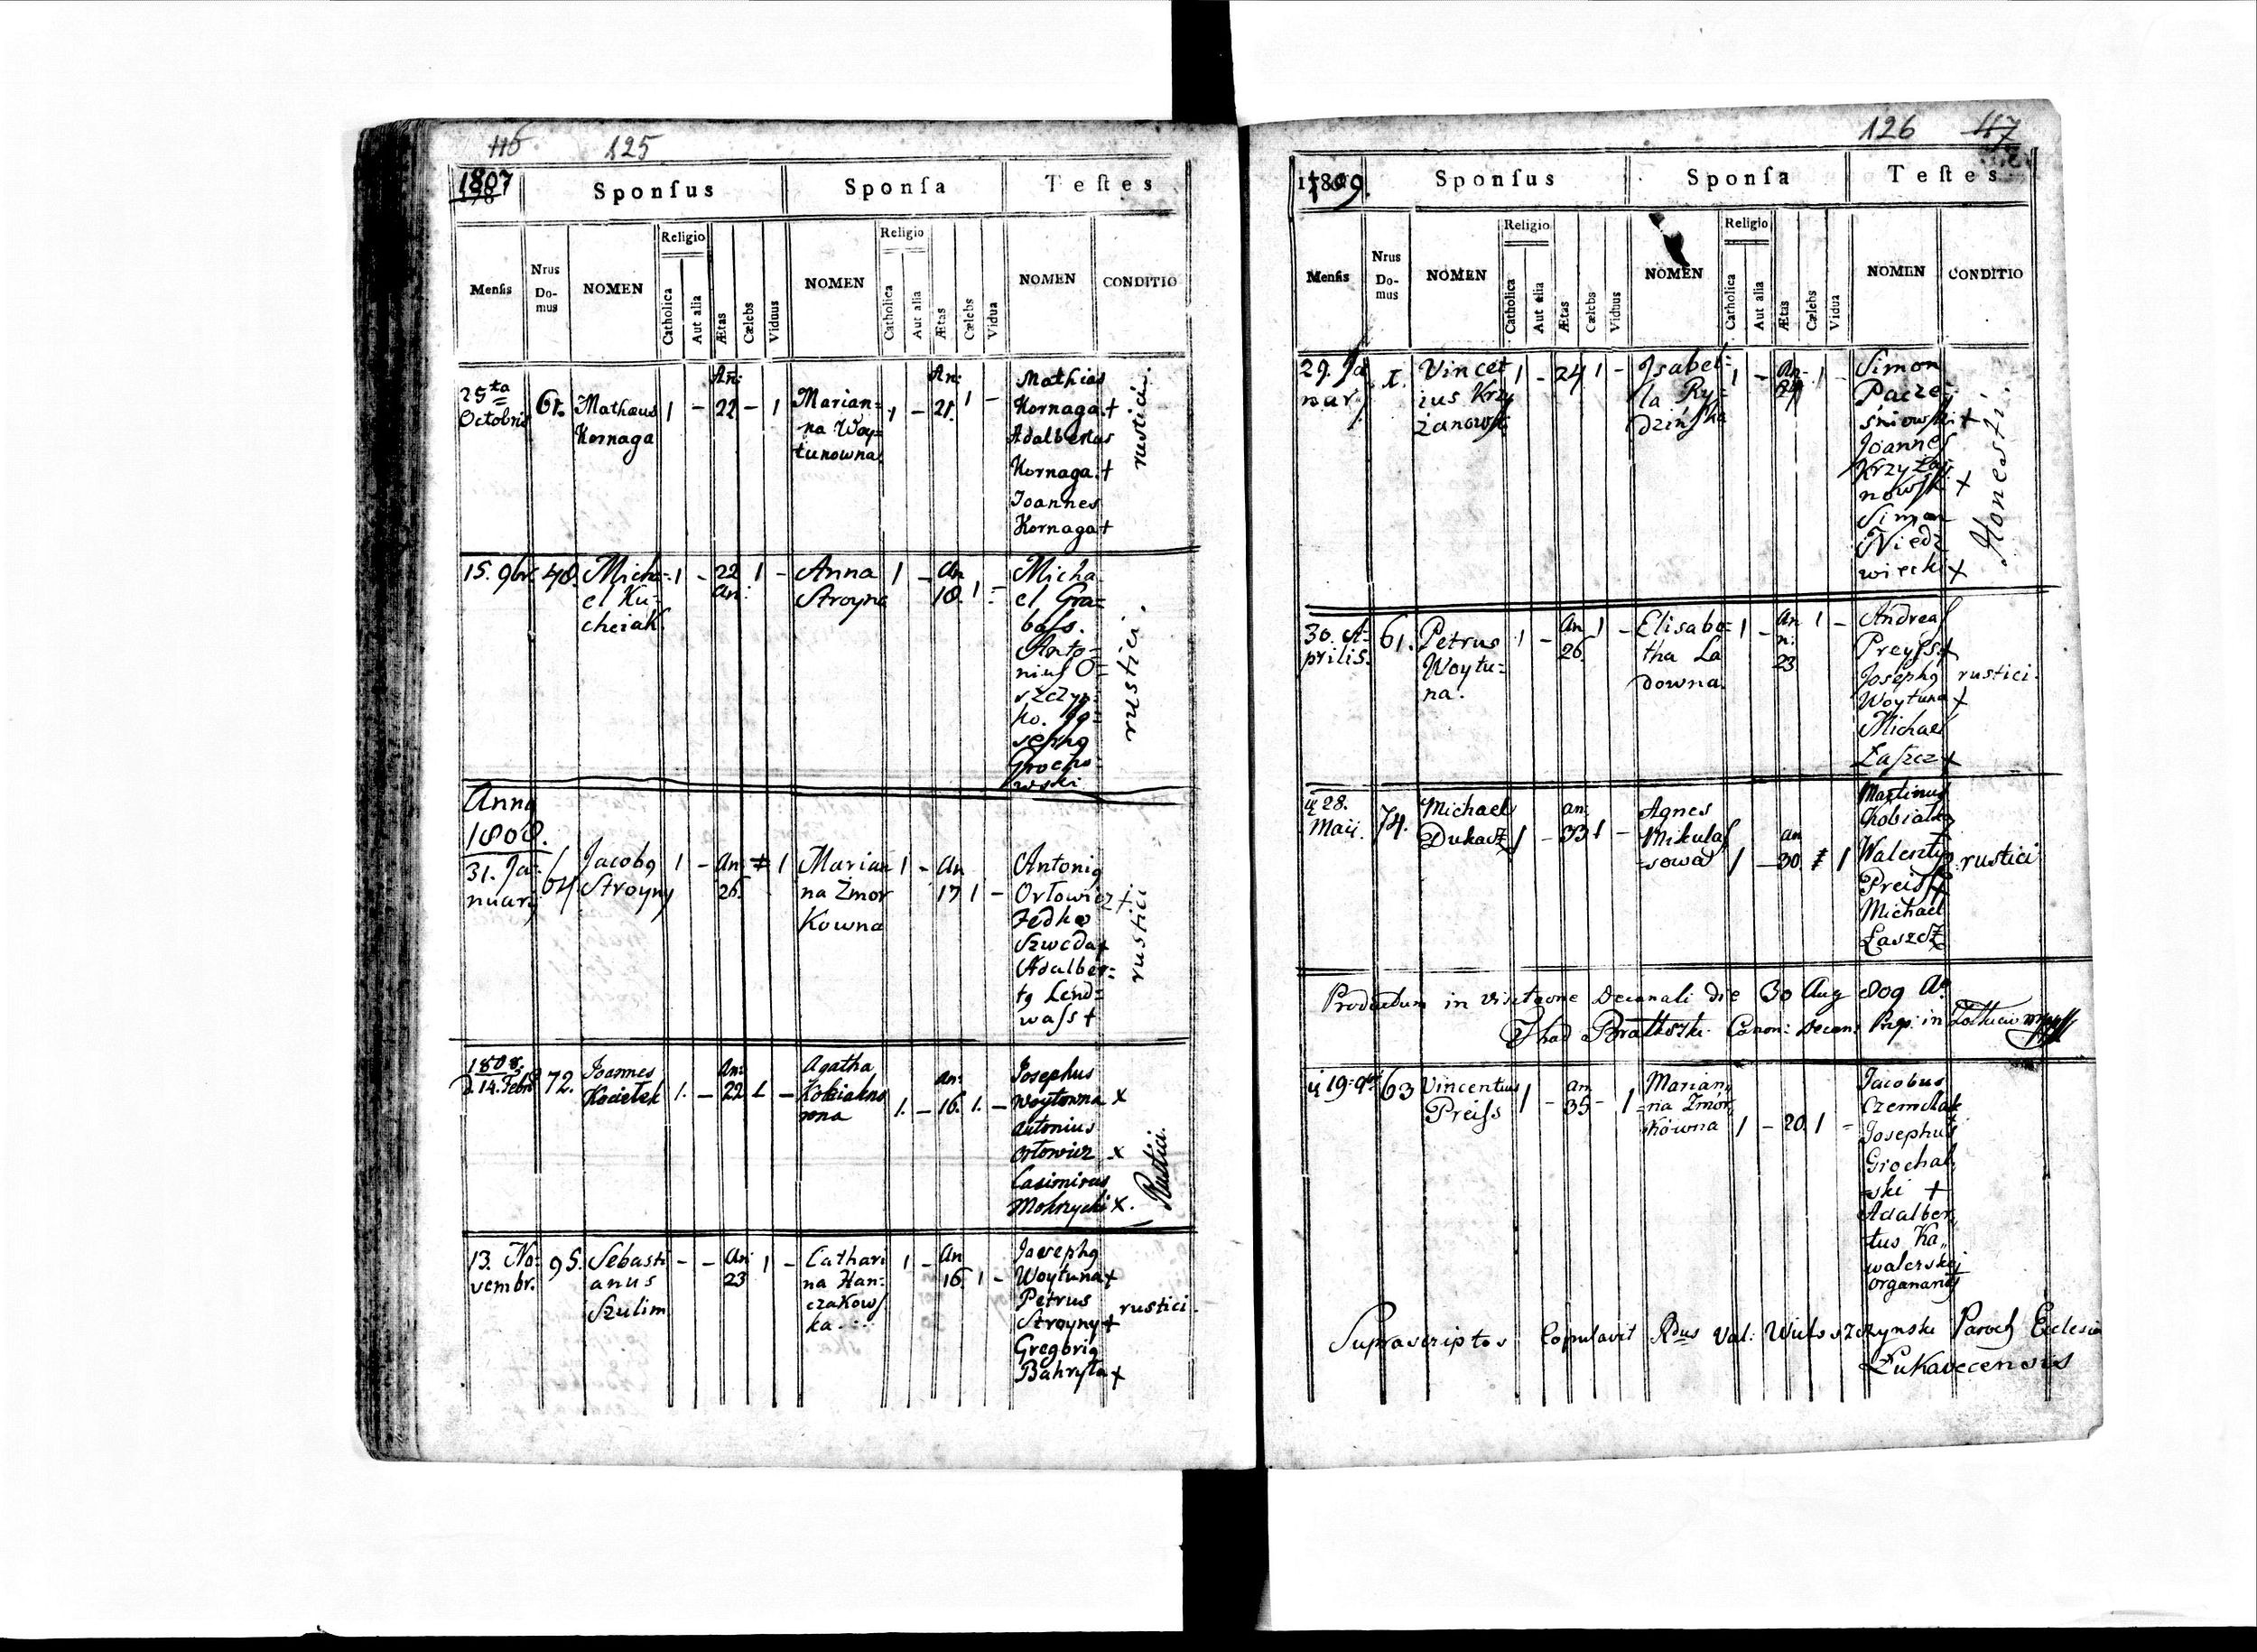 116 125
1807
178
Sponſus Sponſa Teſtes
Menſis Nrus Do-mus NOMEN Religio Catholica Aut alia Ætas Cælebs Viduus NOMEN Religio Catholica Aut alia Ætas Cælebs Vidua NOMEN CONDITIO
25ta Octobris 61. Mathæus Kornaga 1 - An: 22 - 1
Marian=
na Woy=
tunowna
1 - An: 21. 1 -
Mathias
Kornaga. +
Adalbertus
Kornaga. +
Joannes
Kornaga +
rustici.
15. 9br. 48. Micha=
el Ku=
cheiak.
1 - 22 an: 1 -
Anna
Stroyna
1 - An 18. 1 -
Micha
el Gra=
baſs.
Anto=
niuſ O=
szczyp=
ko. Jo=
sephg
Grocho=
wski
rustici.
Anno
1808.
31. Ja=
nuarij
64 Jacobg
Stroyny
1 - An: 26. 1
Marian
na Żmor
Kowna
1 - An 17 1 -
Antonig
Orłowicz +
Fedko
Szweda +
Adalber=
tg Lend=
waſs +
rustici
1808.
d. 14. Febr
72. Joannes
Kocietek
1. - An: 22 1 -
Agatha
Kobiakno
wna
1. - An: 16. 1. -
Josephus
Woytowna x
Antonius
Orłowicz x
Casimirus
Mokrzycki x.
Rustici.
13. No=
vembr.
95. Sebasti
anus
Szulim
- - An 23 1 -
Cathari
na Han=
czakowſ
ka.
1 - An 16. 1 -
Josephg
Woytuna +
Petrus
Stroyny +
Gregorig
Bahryła +
rustici.
126 117
1809.
Sponſus Sponſa Teſtes
Menſis Nrus Do-mus NOMEN Religio Catholica Aut alia Ætas Cælebs Viduus NOMEN Religio Catholica Aut alia Ætas Cælebs Vidua NOMEN CONDITIO
29. Ja
nuar.
1. Vincet
ius Krzy
żanowſki
1 - 24 1 -
Jsabel=
la Ry=
dzińſka
1 - An. 24 1 -
Simon
Pacze=
śniowſki +
Joannes
Krzyża=
nowſki +
Simon
Niedz
wiecki +
Honesti.
30. A=
prilis.
61. Petrus
Woytu=
na.
1 - An 26. 1 -
Elisabe=
tha La
downa.
1 - An n: 23 1 -
Andreaſ
Preyſs +
Josephg
Woytuna +
Michael
Łaſzcz +
rustici.
28.
Maii.
74. Michael
Dukacz
1 - an: 33 1 -
Agnes
Mikulaſ
sowa
1 - an 30 1
Martinus
Kobiałko
Walenty
Preiſs +
Michael
Łaszcz
rustici
Productum in visitaone Decanali die 30 Aug 809 Ao
Thad Bratkoski Canon: Decan: Prep: in Zołkiew mpp
19 9br 63 Vincentius
Preiſs
1 - an 35 - 1
Marian
na Żmor
kowna
1 - 20. 1 -
Jacobus
Czemilak
Josephus
Grochal
ski +
Adalber
tus Ka
walerski
organarig
Suprascriptos Copulavit Rdus Val: Wieloszczynski Paroch Eclesia
Łukavecensis